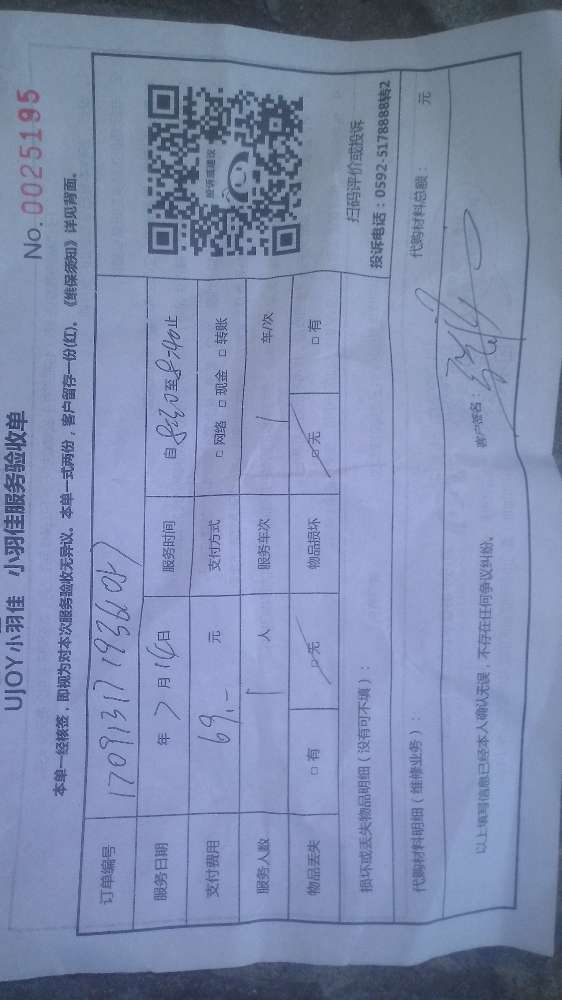 UJOY小羽佳 小羽佳服务验收单
No.0025195
本单一经核签，即视为对本次服务验收无异议。本单一式两份，客户留存一份(红)。《维保须知》详见背面。
订单编号
服务日期 年 7 月 14 日 服务时间 自 8:30 至 8:40 止
支付费用 69.- 元 支付方式 □ 网络 □ 现金 □ 转账
服务人数 1 人 服务车次 1 车/次
物品丢失 □ 有 □ 无 物品损坏 □ 无 □ 有
投诉或建议
扫码评价或投诉
投诉电话：0592-5178888转2
损坏或丢失物品明细（没有可不填）：
代购材料明细（维修业务）： 代购材料总额： 元
以上填写信息已经本人确认无误，不存在任何争议纠纷。 客户签名：